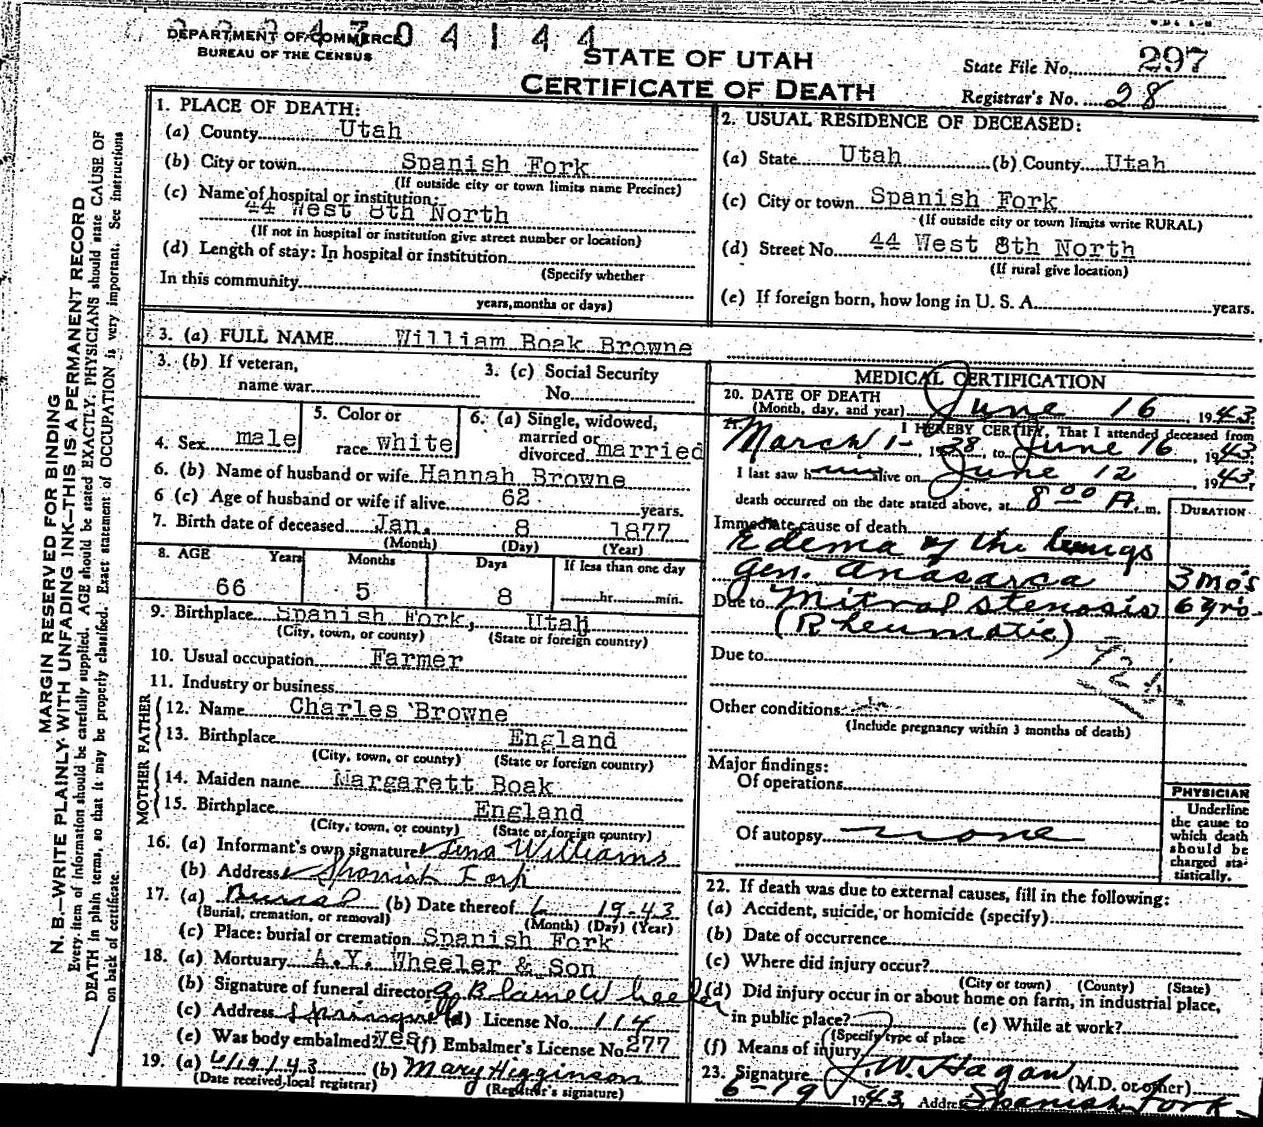 2 2 2 4 3 0 4 1 4 4
DEPARTMENT OF COMMERCE
BUREAU OF THE CENSUS
STATE OF UTAH
CERTIFICATE OF DEATH
State File No. 297
Registrar's No. 28
MARGIN RESERVED FOR BINDING
N. B.—WRITE PLAINLY WITH UNFADING INK—THIS IS A PERMANENT RECORD
Every item of information should be carefully supplied. AGE should be stated EXACTLY. PHYSICIANS should state CAUSE OF
DEATH in plain terms, so that it may be properly classified. Exact statement of OCCUPATION is very important. See instructions
on back of certificate.
1. PLACE OF DEATH:
(a) County Utah
(b) City or town Spanish Fork
(If outside city or town limits name Precinct)
(c) Name of hospital or institution:
44 West 8th North
(If not in hospital or institution give street number or location)
(d) Length of stay: In hospital or institution
(Specify whether
In this community
years, months or days)
2. USUAL RESIDENCE OF DECEASED:
(a) State Utah (b) County Utah
(c) City or town Spanish Fork
(If outside city or town limits write RURAL)
(d) Street No. 44 West 8th North
(If rural give location)
(e) If foreign born, how long in U. S. A. years.
3. (a) FULL NAME William Boak Browne
3. (b) If veteran,
name war
3. (c) Social Security
No.
4. Sex male
5. Color or
race white
6. (a) Single, widowed,
married or
divorced married
6. (b) Name of husband or wife Hannah Browne
6 (c) Age of husband or wife if alive 62 years.
7. Birth date of deceased Jan. 8 1877
(Month) (Day) (Year)
8. AGE Years Months Days If less than one day
66 5 8 hr. min.
9. Birthplace Spanish Fork, Utah
(City, town, or county) (State or foreign country)
10. Usual occupation Farmer
11. Industry or business
FATHER
12. Name Charles Browne
13. Birthplace England
(City, town, or county) (State or foreign country)
MOTHER
14. Maiden name Margarett Boak
15. Birthplace England
(City, town, or county) (State or foreign country)
16. (a) Informant's own signature Tena Williams
(b) Address Spanish Fork
17. (a) Burial (b) Date thereof 6 19-43
(Burial, cremation, or removal) (Month) (Day) (Year)
(c) Place: burial or cremation Spanish Fork
18. (a) Mortuary A.Y. Wheeler & Son
(b) Signature of funeral director A Blaine Wheeler
(c) Address Springville (d) License No. 114
(e) Was body embalmed? yes (f) Embalmer's License No. 277
19. (a) 6/19/43 (b) Mary Higginson
(Date received local registrar) (Registrar's signature)
MEDICAL CERTIFICATION
20. DATE OF DEATH
(Month, day, and year) June 16, 1943
21. I HEREBY CERTIFY, That I attended deceased from
March 1-, 1938, to June 16, 1943
I last saw him alive on June 12, 1943,
death occurred on the date stated above, at 8 00 A.m.
DURATION
Immediate cause of death
Edema of the lungs
Gen. Anasarca 3 mo's
Due to Mitral stenosis 6 yrs.
(Rheumatic)
Due to
Other conditions
(Include pregnancy within 3 months of death)
Major findings:
Of operations
Of autopsy none
PHYSICIAN
Underline
the cause to
which death
should be
charged sta-
tistically.
22. If death was due to external causes, fill in the following:
(a) Accident, suicide, or homicide (specify)
(b) Date of occurrence
(c) Where did injury occur?
(City or town) (County) (State)
(d) Did injury occur in or about home on farm, in industrial place,
in public place? (e) While at work?
(Specify type of place
(f) Means of injury
23. Signature J. W. Hagan (M.D. or other)
6-19 1943, Address Spanish Fork